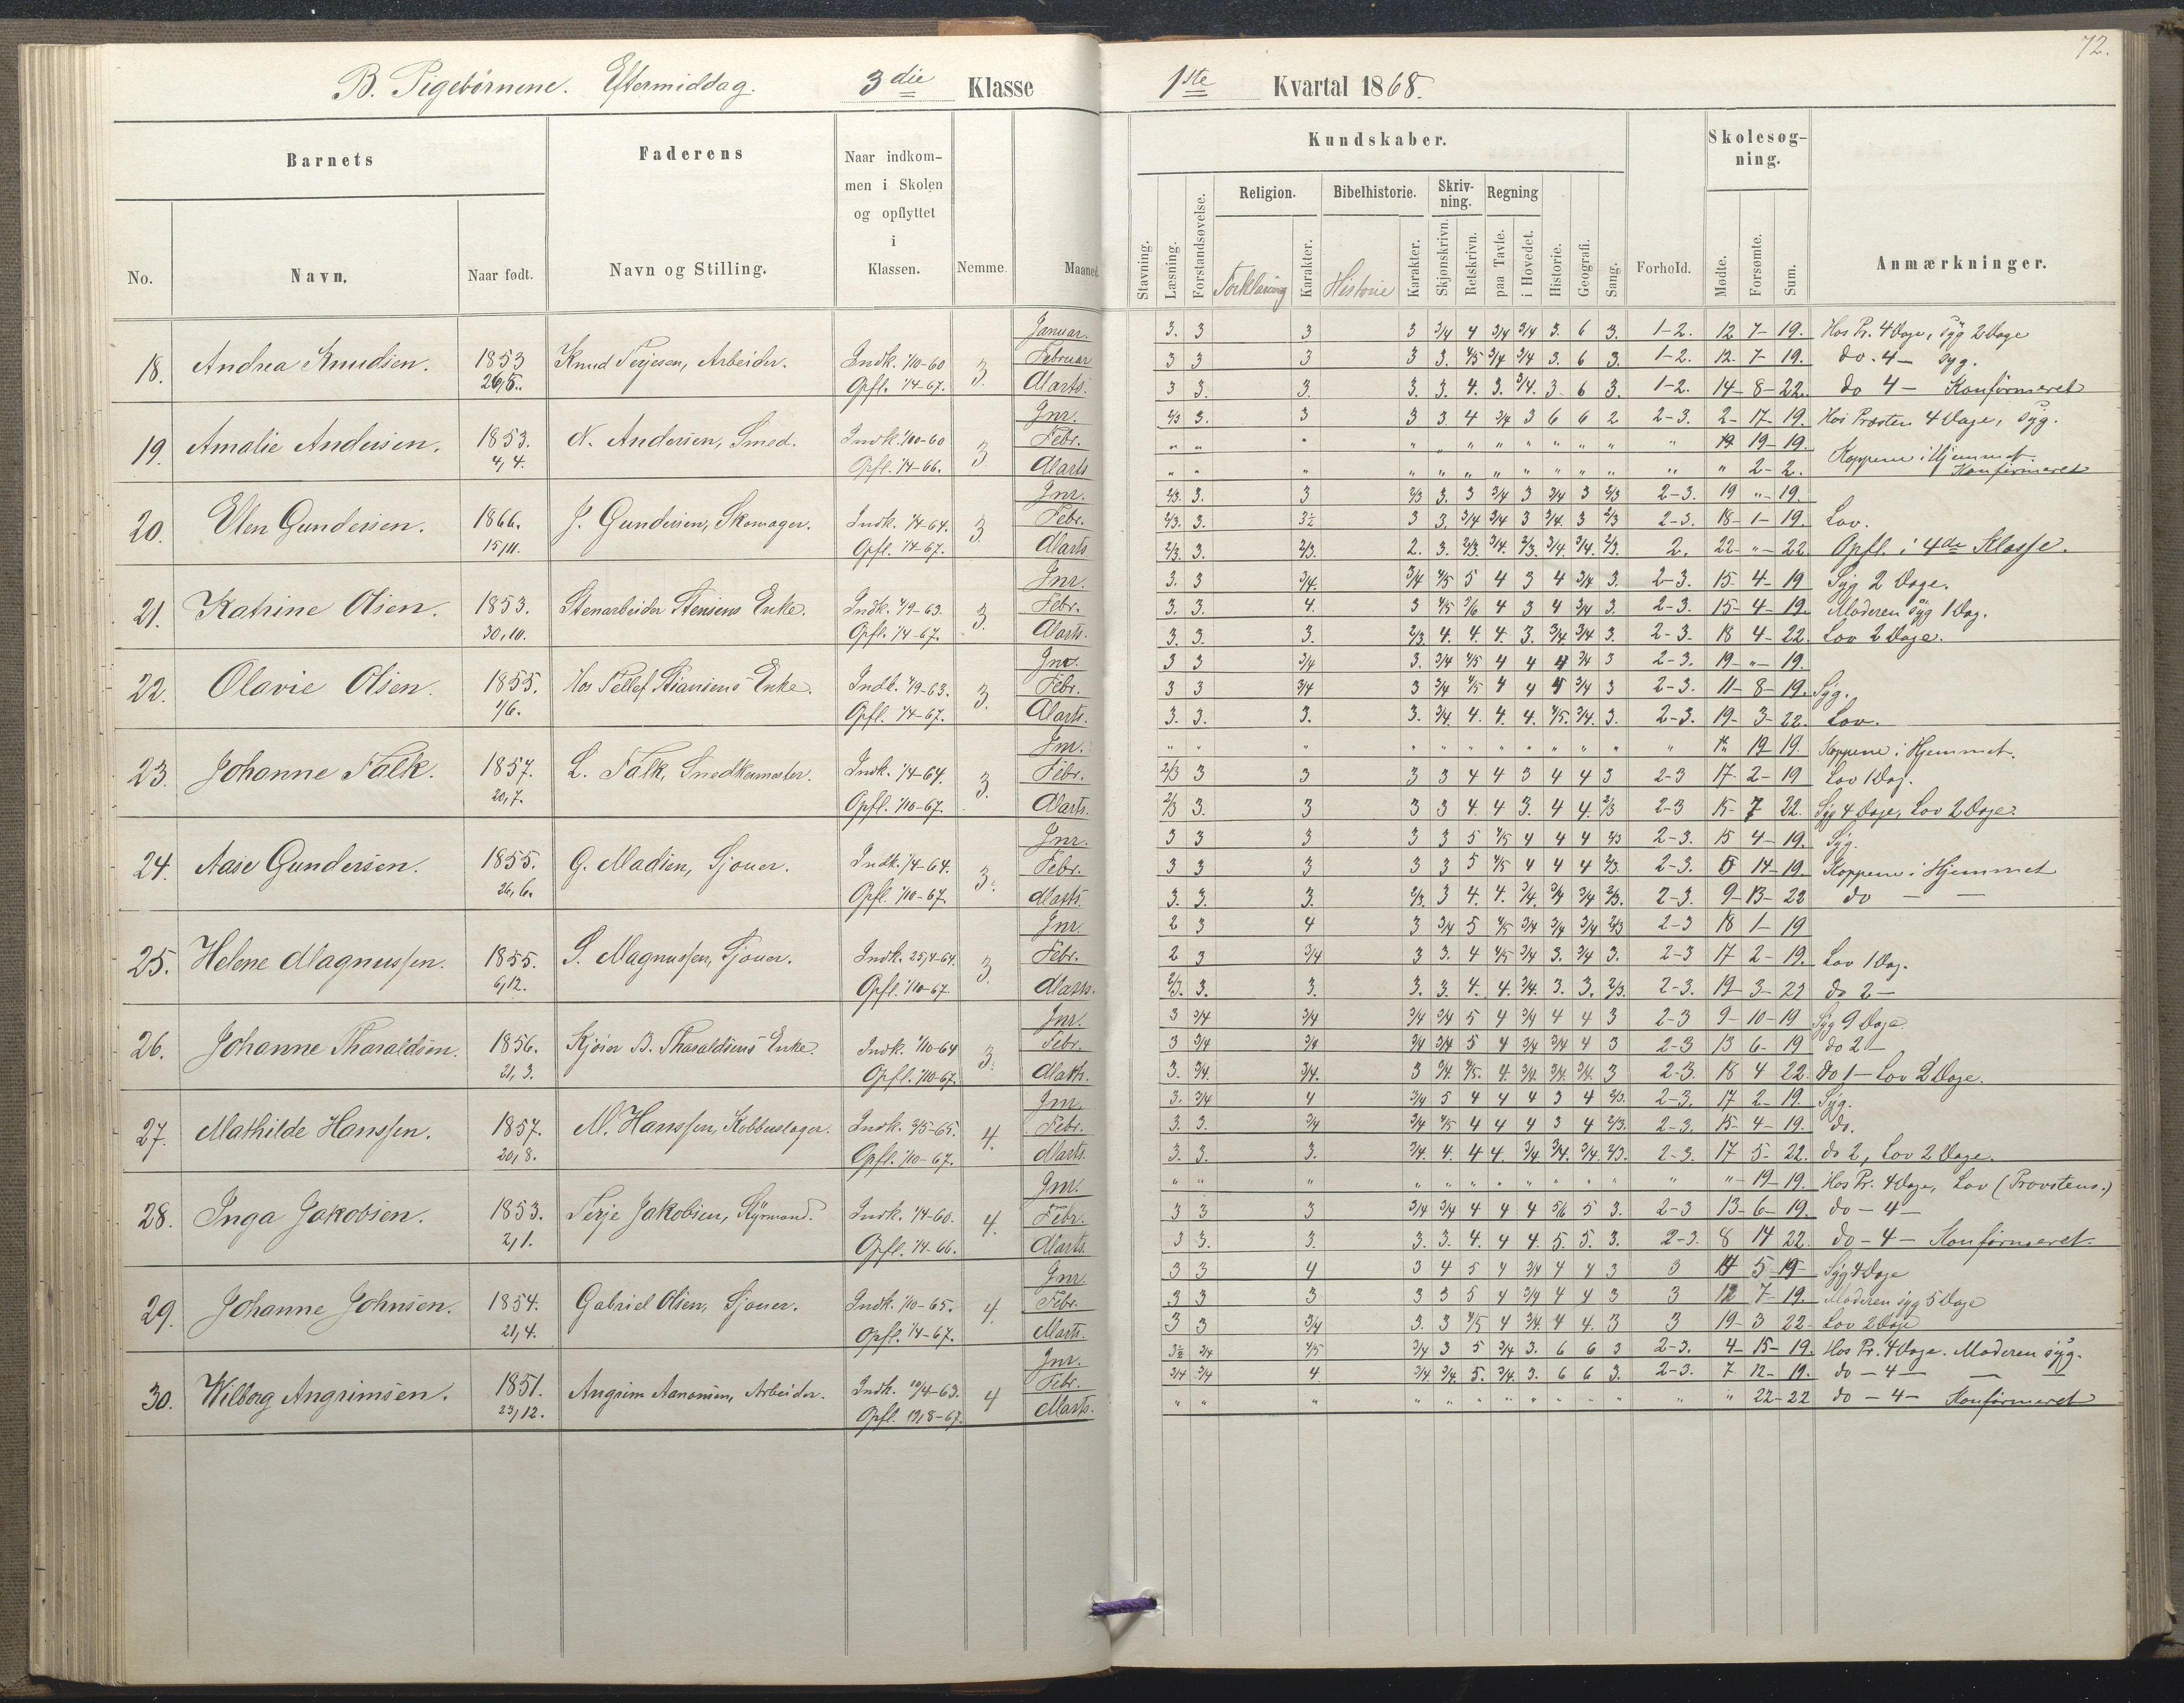 72.
B. Pigebørnene. Eftermiddag. 3die Klasse 1ste Kvartal 1868.
Barnets Faderens Naar indkommen i Skolen og opflyttet i Klassen. Nemme. Maaned Kundskaber. Forhold. Skolesøgning. Anmærkninger.
No. Navn. Naar født. Navn og Stilling. Stavning. Læsning. Forstandsøvelse. Religion. Forklaring Karakter. Bibelhistorie. Historie Karakter. Skrivning. Skjønskrivn. Retskrivn. Regning paa Tavle. i Hovedet. Historie. Geografi. Sang. Mødte. Forsømte. Sum.
18. Andrea Knudsen. 1853 26,5. Knud Terjesen, Arbeider. Indk. 1/10-60 Opfl. 1/4-67. 3.
Januar. 3. 3 3 3 3/4 4 3/4 3/4 3. 6 3. 1-2. 12 7- 19. Hos Pr. 4 Dage, syg 2 Dage
Februar 3 3 3 3 3. 4/5 3/4 3/4 3. 6 3. 1-2. 12. 7- 19. do. 4 - syg.
Marts. 3 3 3. 3. 3. 4. 3. 3/4. 3 6 3. 1-2. 14- 8- 22. do 4 - Konfirmeret
19. Amalie Andersen. 1853. 4,4. N. Andersen, Smed. Indk. 1/10-60 Opfl. 1/4-66. 3
Jnr. 2/3 3. 3 3 3. 4 3/4 3 6 6 2 2-3. 2- 17- 19. Hos Provsten 4 Dage, syg.
Febr. " " " " " " " " " " " " 19- 19.
Marts " " " " " " " " " " " " " 2- 2. Koppene i Hjemmet. Konfirmeret
20. Elen Gundersen. 1866. 15/11. J. Gundersen, Skomager. Indk. 1/4-64. Opfl. 1/4-67. 3
Jnr. 2/3. 3. 3 2/3 3. 3 3/4 3 3/4 3 2/3 2-3. 19 "- 19.
Febr. 2/3. 3. 3½ 3 3. 3/4 3/4 3 3/4. 3 2/3 2-3. 18- 1- 19. Lov.
Marts 2/3. 3. 2/3. 2. 3. 2/3. 3/4. 2/3. 3/4. 3/4. 2/3. 2. 22- "- 22. Opfl. i 4de Klasse.
21. Katrine Olsen. 1853. 30,10. Stenarbeider Stensens Enke. Indk. 1/9-63. Opfl. 1/4-67. 3.
Jnr. 3. 3 3/4. 3/4 4/5 5 4 3 4 3/4 3. 2-3. 15. 4- 19 Syg 2 Dage.
Febr. 3. 3. 4. 3 4/5 5/6 4 3 4 3/4 3. 2-3. 15- 4- 19. Moderen syg 1 Dag.
Marts. 3. 3. 3. 2/3. 4. 4. 4. 3. 3/4. 3/4 3. 2-3. 18 4- 22. Lov 2 Dage.
22. Olavie Olsen. 1855. 1/6. Hos Tellef Stiansens Enke. Indk. 1/9-63. Opfl. 1/4-67. 3.
Jnr. 3 3 3/4 3. 3/4 4/5 4 4 4 3/4 3 2-3. 19- "- 19.
Febr. 3 3 3/4 3 3/4 4/5 4 4 4 3/4 3 2-3. 11- 8- 19. Syg.
Marts. 3. 3. 3. 3. 3/4. 4. 4. 4. 4/5. 3/4. 3. 2-3. 19- 3- 22. Lov.
23. Johanne Falk. 1857. 20,7. L. Falk, Snedkermester. Indk. 1/4-64. Opfl. 1/10-67. 3.
Jnr. " " " " " " " " " " " " 19- 19. Koppene i Hjemmet.
Febr. 2/3 3 3 3 3 4 4 3 4 4 3 2-3 17- 2- 19 Lov 1 Dag.
Marts. 2/3 3. 3 3 3 4. 4 3. 4 4. 2/3 2-3 15- 7 22. Syg 4 Dage, Lov 2 Dage.
24. Aase Gundersen. 1855. 26,6. G. Madsen, Sjouer. Indk. 1/4-64. Opfl. 1/10-67. 3.
Jnr. 3 3 3 3 3 5 4/5 4 4 4 2/3 2-3. 15 4- 19. Syg.
Febr. 3 3 3 3 3 5 4/5 4 4 4 2/3. 2-3. 5 14- 19. Koppene i Hjemmet
Marts. 3. 3. 3. 2/3. 3 4. 4. 3/4. 3/4 3/4 2/3. 2-3. 9- 13- 22 do - -
25. Helene Magnussen. 1855. 6,12. S. Magnussen, Sjouer. Indk. 25/4-64. Opfl. 1/10-67 3.
Jnr. 2 3 4 3 3/4 5 4/5 3/4 3/4 3/4 2/3 2-3 18 1- 19
Febr. 2 3 3/4 3 3. 4 4/5 3/4 3. 3/4 3. 2-3 17 2- 19. Lov 1 Dag.
Marts. 2/3. 3. 3. 3. 3. 4. 4. 3/4. 3. 3. 2/3. 2-3. 19- 3- 22 do 2 -
26. Johanne Tharaldsen. 1856. 21,3. Kjøier B. Tharaldsens Enke. Indk. 1/10-64 Opfl. 1/10-67. 3.
Jnr. 3 3/4 3/4 3/4 3/4 5 4 3/4 4 4 3 2-3 9- 10- 19 Syg 9 Dage.
Febr. 3 3/4 3/4 3/4 3/4 5 4 3/4 3/4 4 3 2-3 13 6- 19 do 2 -
Marts. 3. 3/4. 3/4. 3 3/4. 4/5. 4. 3/4. 3/4. 3/4. 3 2-3. 18 4 22. do 1 - Lov 2 Dage.
27. Mathilde Hanssen. 1857. 20,8. M. Hanssen, Kobberslager. Indk. 3/5-65. Opfl. 1/10-67. 4.
Jnr. 3. 3/4 4 3/4 5 4 4 4 3 4 2/3. 2-3. 17 2- 19. Syg.
Febr. 3. 3. 3/4 3/4 4/5 4 4 4 3 4 2/3. 2-3. 15- 4- 19. do.
Marts 3. 3. 3. 3/4. 4. 4 4. 3/4 3/4. 3/4. 2/3. 2-3. 17 5- 22. do 2, Lov 2 Dage.
28. Inga Jakobsen. 1853. 2,1. Terje Jakobsen, Styrmand. Indk. 1/4-60. Opfl. 1/4-66. 4.
Jnr. " " " " " " " " " " " " "- 19- 19. Hos Pr. 4 Dage, Lov (Provstens.)
Febr. 3 3 3 3/4 3/4 4 4 4 5/6 5 3. 2-3 13- 6- 19. do - 4 -
Marts. 3 3. 3. 3. 3. 4. 4 4. 5. 5. 3. 2-3. 8 14 22. do - 4 - Konfirmeret.
29. Johanne Johnsen. 1854. 21,4. Gabriel Olsen, Sjouer. Indk. 1/10-65. Opfl. 1/4-67. 4.
Jnr. 3 3 4 3 4 5 4 3/4 4 4 3 3 14 5- 19- Syg 4 Dage
Febr. 3 3 3 3 3 5 4 3/4 4 4 3 3 12 7- 19. Moderen syg 5 Dage
Marts. 3 3 3/4 3. 3 4/5 4 3/4. 4 4. 3 3 19- 3 22- Lov 2 Dage
30. Wilborg Angrimsen. 1851. 23,12. Angrim Aanonsen, Arbeider. Indk. 10/4-63. Opfl. 19,8-67. 4
Jnr. 3½ 3/4 4/5 3/4 3 5 3/4 3. 6 6 3 2-3. 4- 15- 19. Hos Pr. 4 Dage. Moderen syg.
Febr. 3/4 3/4 4 3/4 3/4. 5. 3/4. 3. 6 6 3. 2-3. 7 12- 19. do - 4 - - -
Marts. " " " " " " " " " " " " " 22- 22 do - 4 - Konfirmeret